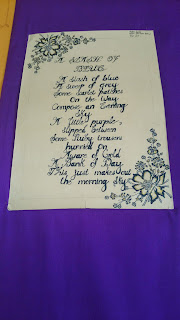 A SLASH OF
BLUE
A slash of blue
A sweep of grey
Some scarlet patches
On the Way
Compose an Evening
Sky
A little purple
slipped between
Some Ruby trousers
hurried on
A Wave of Gold
A Bank of Day
This just makes out
the morning sky